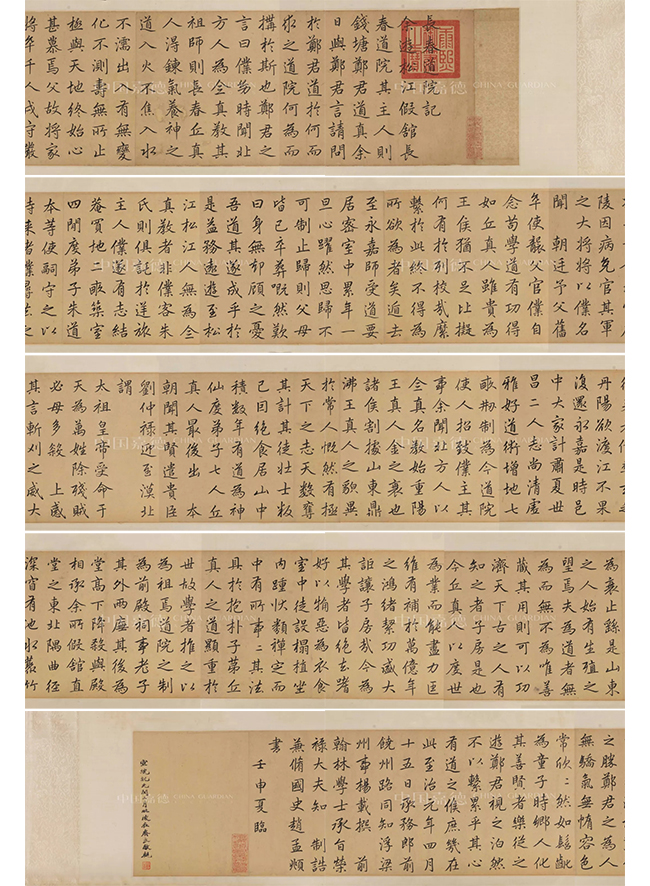 長春道院記
余遊松江假館長
春道院其主人則
錢塘鄭君道真余
日與鄭君言請問
於鄭君道於何而
求之道院何為而
搆於斯也鄭君之
言曰僕時聞北
方人為全真教其
祖師則長春丘真
人淂鍊氣養神之
道入火不焦入水
不濡出入有無變
化不測壽無所止
極與天地終始心
甚慕焉父故將家
將卒千人戍守
陵因病免官其軍
之大將將以僕名
聞 朝廷予父舊
年使襲父官僕自
念苟學道有功得
如丘真人雖貴為
王侯猶不足比擬
何有於列校哉縻
繫於此終不得為
所欲為者矣遁去
至永嘉師受道要
居密室中累年一
旦心躍然思歸不
可制止歸則父母
皆已卒葬嘅然歎
曰身無却顧之憂
吾道其遂成乎於
是益務遠遊至松
江松江人無為全
真教者非僕客朱
氏則俱託於逆旅
主人僕遂有志結
菴買地二畝築室
四間度弟子朱道
本等使嗣守之以
待來者僕尋去之
丹陽欲渡江不果
復還永嘉是時邑
中大家計肅夏世
昌二人志尚清虛
雅好道術增地七
畝剙制為今道院
使人招致僕主其
事余聞北方人以
全真名教始重陽
王真人金之衰也
諸侯割據山東鼎
沸王真人之貌異
於常人慨然有拯
天下之志天數奪
其計其徒壯士叛
已因絕食居山中
積數年有道為神
仙度弟子七人丘
真人最後出 本
朝聞其賢遣貴臣
劉仲祿近至漠北
謂
太祖皇帝受命于
天為萬姓除殘賊
必毋多殺 上感
其言斬刈之威大
為衰止餘是山東
之人始有生殖之
望焉夫為道者無
為而無不為唯善
藏其用則可以功
濟天下古之人有
知之者子房是也
今丘真人以度世
為業而能盡力匡
維有補於萬億年
之鴻緒絜功盛大
詎讓子房哉今為
其學者皆絕去嗜
好以犓惡為衣食
室中徒設榻植坐
內踵怳類禪定而
中有所事二其法
具於抱朴子苐丘
真人之道顯重於
世故學者推之以
為祖焉道院之制
為前殿祠事老子
其外兩廡其後為
堂高下降與殿
相承余所假館直
堂之東北隅曲徑
深窅有池水叢竹
之勝鄭君之為人
無驕氣無惰容色
常欣欣然如髫齔
為童子時鄉人化
其善賢者樂從之
遊鄭君視之泊然
不以繫累乎其心
有道之候庶幾在
此至治元年四月
十五日承務郎前
饒州路同知浮梁
州事楊載撰 前
翰林學士承旨榮
祿大夫知 制誥
兼脩國史趙孟頫
書
壬申夏臨
中国嘉德 CHINA GUARDIAN